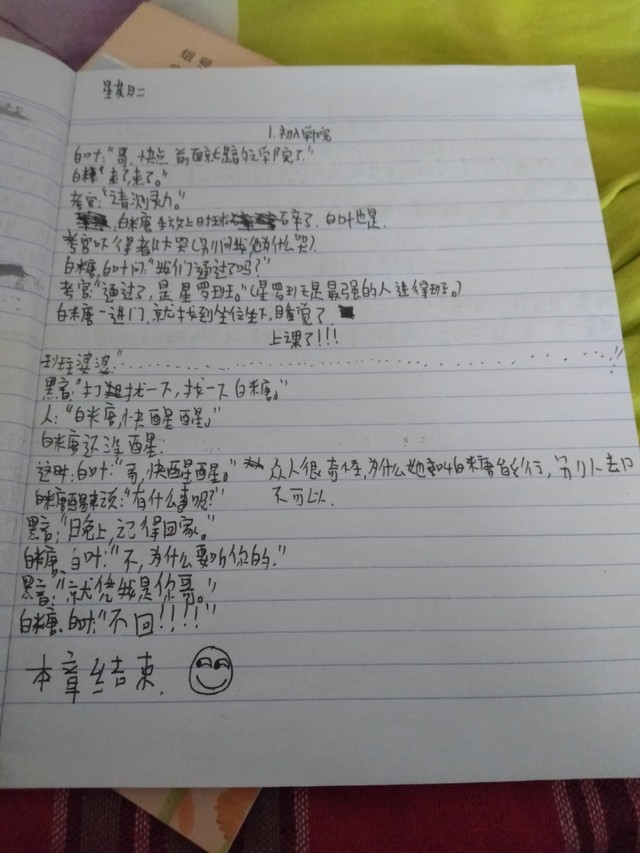 星期二
1.初入学院
白叶:“哥,快点 前面就是学院了”
白糖“走了,走了。”
考官:“请测灵力。”
白糖手放上 碎了.白叶也是.
考官 得着 大哭(别问我为什么哭).
白糖,白叶问:“我们通过了吗?”
考官“通过了,是星罗班。”(星罗班是最强的人进得班。)
白糖一进门,就找到坐位坐下,睡觉了
上课了!!!
班主婆婆:“…………………………!!”
黑言:“打扰一下,找一下白糖。”
人:“白糖,快醒醒。”
白糖还没醒.
这时:白叶:“哥,快醒醒。” 众人很奇怪,为什么她叫白糖能行,别人去叫
不可以.
白糖醒来说:“有什么事呢?”
黑言:“日晚上,记得回家。”
白糖、白叶:“不,为什么要听你的.”
黑言:“就凭我是你哥。”
白糖.白叶:“不回!!!!”
本章结束.